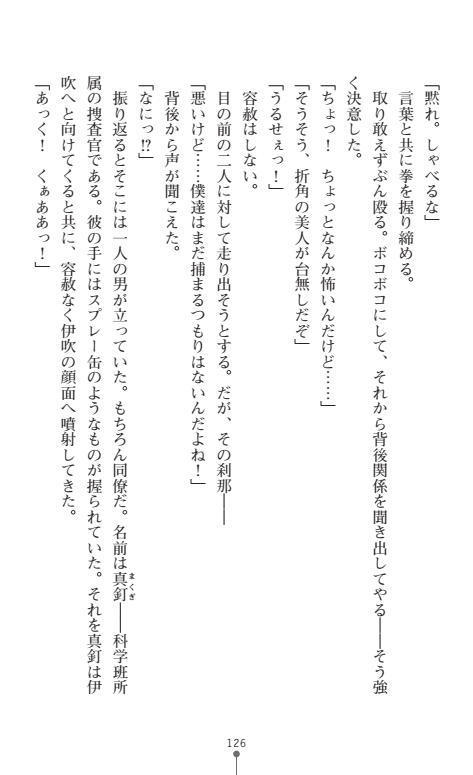 「黙れ。しゃべるな」
　言葉と共に拳を握り締める。
　取り敢えずぶん殴る。ボコボコにして、それから背後関係を聞き出してやる――そう強
く決意した。
「ちょっ！　ちょっとなんか怖いんだけど……」
「そうそう、折角の美人が台無しだぞ」
「うるせぇっ！」
　容赦はしない。
　目の前の二人に対して走り出そうとする。だが、その刹那――
「悪いけど……僕達はまだ捕まるつもりはないんだよね！」
　背後から声が聞こえた。
「なにっ!?」
　振り返るとそこには一人の男が立っていた。もちろん同僚だ。名前は真釘――科学班所
まくぎ
属の捜査官である。彼の手にはスプレー缶のようなものが握られていた。それを真釘は伊
吹へと向けてくると共に、容赦なく伊吹の顔面へ噴射してきた。
「あっく！　くぁああっ！」
126